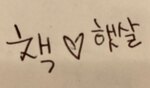 책♡햇살